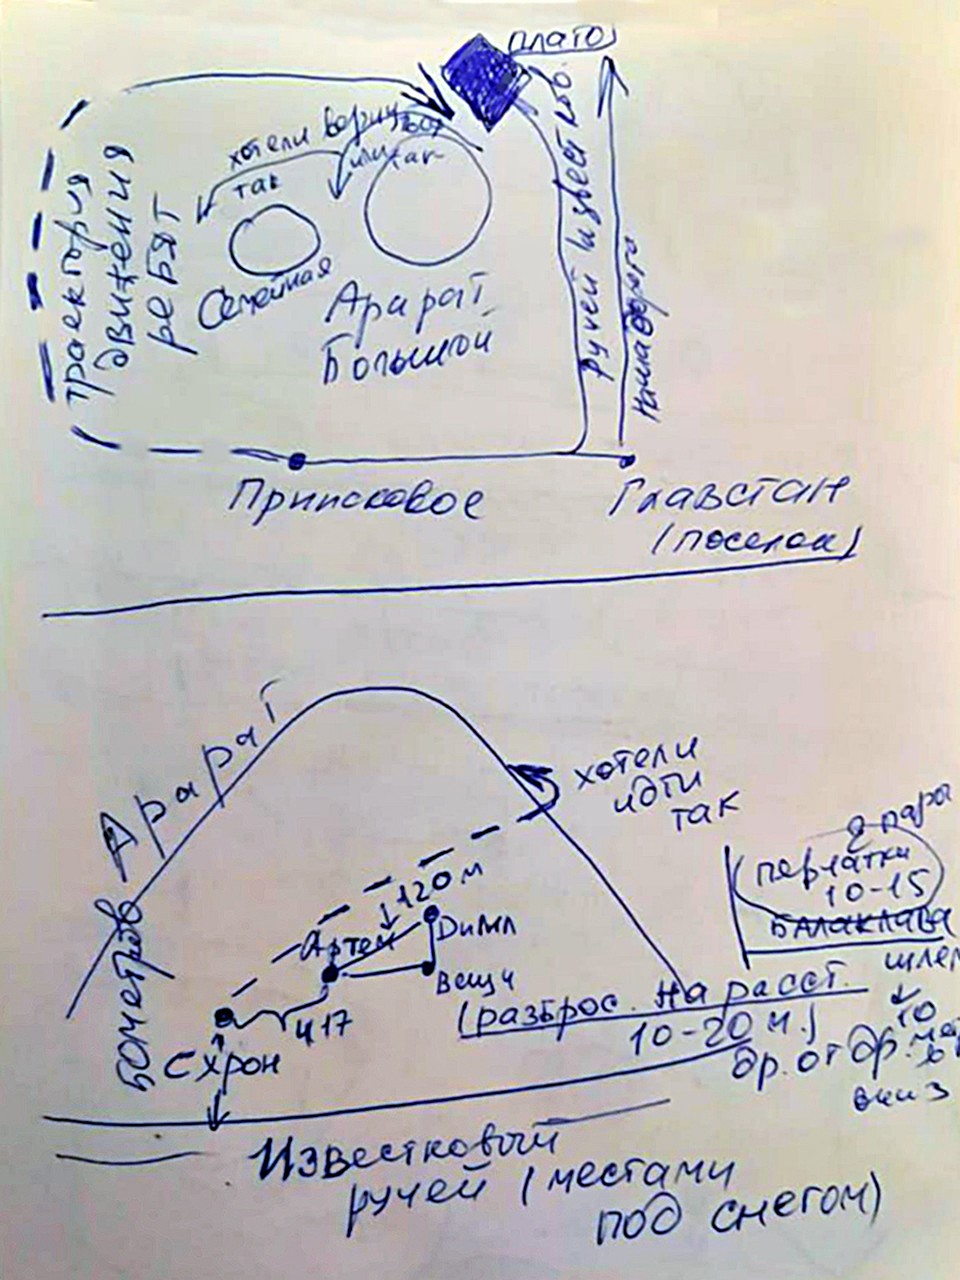 плато
хотели верн.
так
или
так
траектория
движения
ребят
Семейная
Арарат
Большой
Ручей Известков.
Наша дорога
Приисковое
Главстан
(поселок)
Арарат
хотели
идти
так
2 пара
перчатки
10-15
балаклава
шлем
120 м
Артем
Дима
Вещи
417
Схрон
60 метров
(разброс. на расст.
10-20 м.)
др. от др.
10
вниз
Известковый
ручей (местами
под снегом)